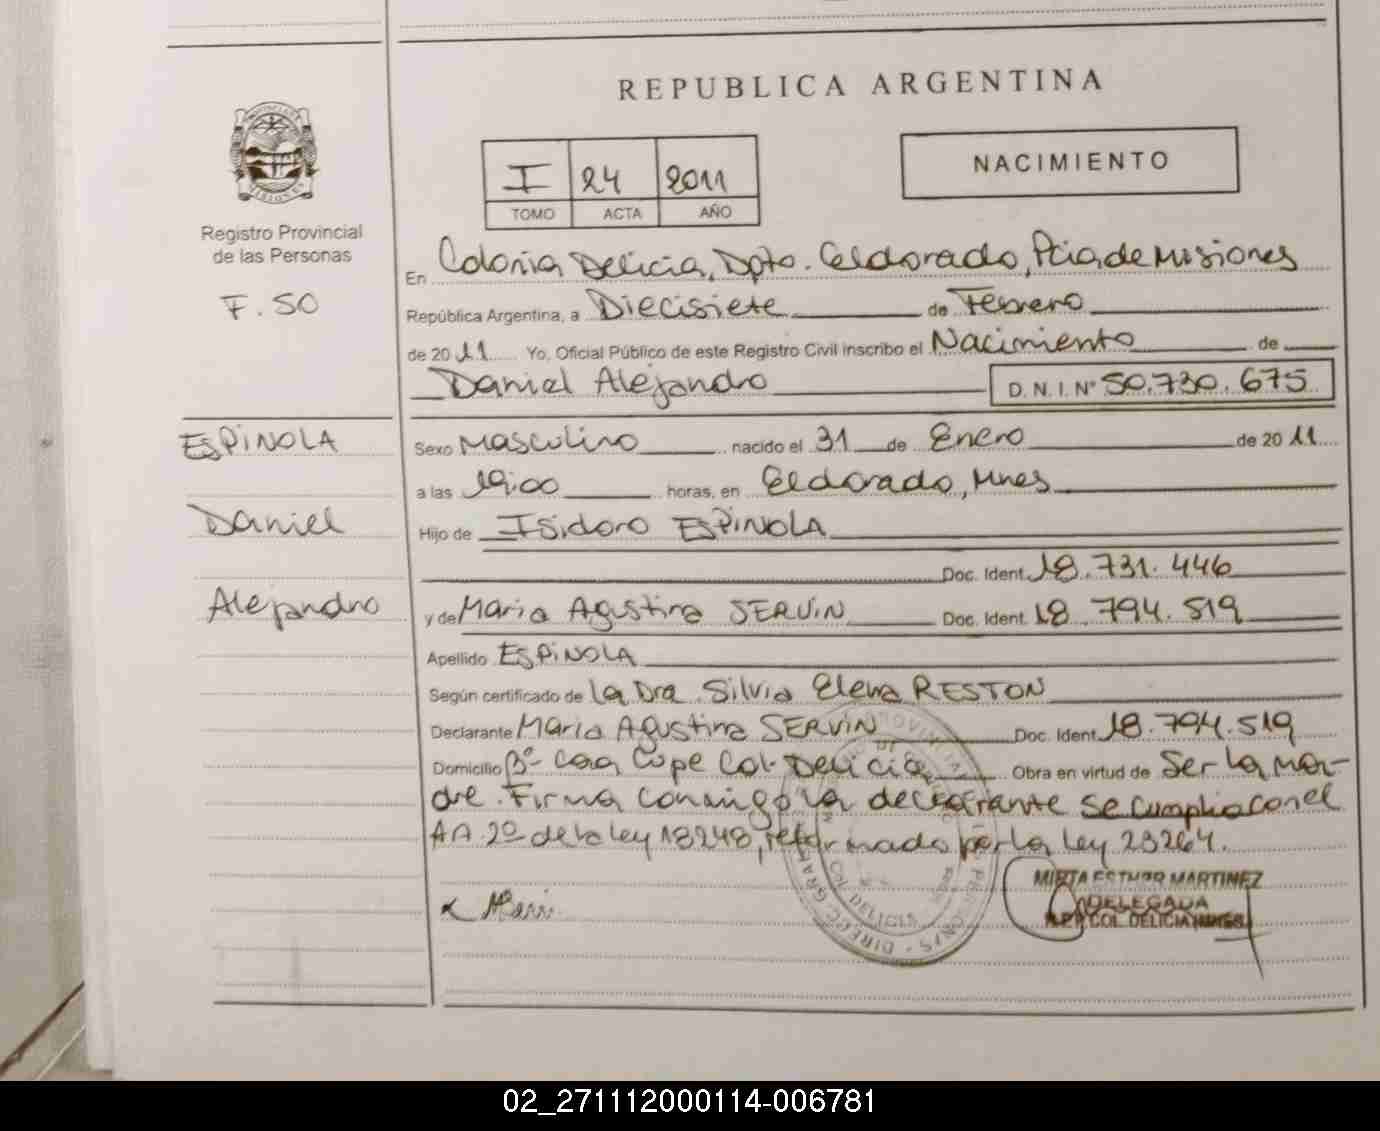 REPUBLICA ARGENTINA
I 24 2011
TOMO ACTA AÑO
NACIMIENTO
Registro Provincial
de las Personas
F. 50
En Colonia Delicia, Dpto. Eldorado, Pcia de Misiones
República Argentina, a Diecisiete de Febrero
de 2011 Yo, Oficial Público de este Registro Civil inscribo el Nacimiento de
Daniel Alejandro D. N. I. Nº 50.730.675
ESPINOLA
Daniel
Alejandro
Sexo Masculino nacido el 31 de Enero de 2011
a las 19:00 horas, en Eldorado, Mnes
Hijo de Isidoro ESPINOLA
Doc. Ident. 18.731.446
y de Maria Agustina SERVIN Doc. Ident. 18.794.519
Apellido ESPINOLA
Según certificado de La Dra. Silvia Elena RESTON
Declarante Maria Agustina SERVIN Doc. Ident. 18.794.519
Domicilio Col. Delicia Obra en virtud de Ser la ma-
dre. Firma conmigo la declarante se cumplio con el
2º de la ley 18248, reformado por la Ley 23264.
MIRTA ESTHER MARTINEZ
DELEGADA
COL DELICIA
COL. DELICIA